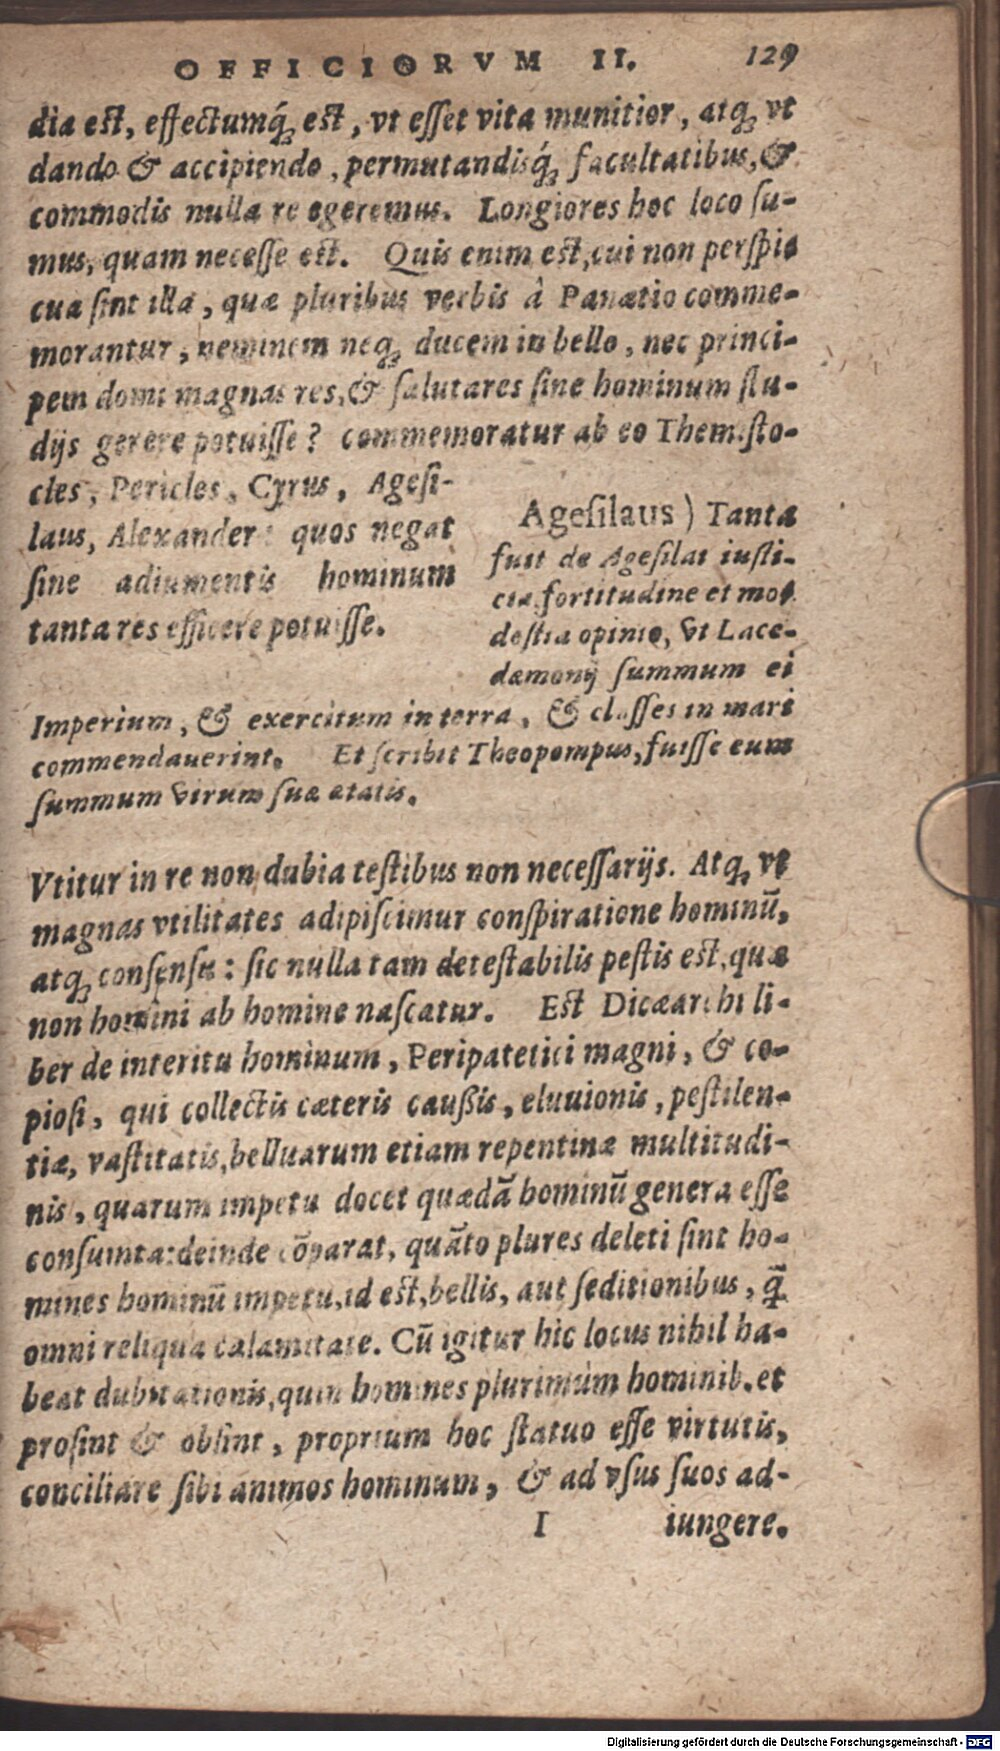 OFFICIORVM II. 129
dia est, effectumq́ꝫ est, vt esset vita munitior, atqꝫ vt
dando & accipiendo, permutandisq́ꝫ facultatibus, &
commodis nulla re egeremus. Longiores hoc loco su-
mus, quam necesse est. Quis enim est, cui non perspi-
cua sint illa, quæ pluribus verbis â Panætio comme-
morantur, neminem neqꝫ ducem in bello, nec princi-
pem domi magnas res, & salutares sine hominum stu-
dijs gerere potuisse? commemoratur ab eo Themisto-
cles, Pericles, Cyrus, Agesi-
laus, Alexander: quos negat
sine adiumentis hominum
tanta res efficere potuisse.
Agesilaus) Tanta
fuit de Agesilai iusti-
cia, fortitudine et mo-
destia opinio, vt Lace-
dæmonij summum ei
Imperium, & exercitum in terra, & classes in mari
commendauerint. Et scribit Theopompus, fuisse eum
summum virum suæ ætatis.
Vtitur in re non dubia testibus non necessarijs. Atqꝫ vt
magnas vtilitates adipiscimur conspiratione hominū,
atqꝫ consensu: sic nulla tam detestabilis pestis est, quæ
non homini ab homine nascatur. Est Dicæarchi li-
ber de interitu hominum, Peripatetici magni, & co-
piosi, qui collectis cæteris caußis, eluuionis, pestilen-
tiæ, vastitatis, belluarum etiam repentinæ multitudi-
nis, quarum impetu docet quædā hominū genera esse
consumta: deinde cōparat, quāto plures deleti sint ho-
mines hominū impetu, id est, bellis, aut seditionibus, q̄
omni reliqua calamitate. Cū igitur hic locus nihil ha-
beat dubitationis, quin homines plurimùm hominib. et
prosint & obsint, proprium hoc statuo esse virtutis,
conciliare sibi animos hominum, & ad vsus suos ad-
I iungere.
Digitalisierung gefördert durch die Deutsche Forschungsgemeinschaft - DFG